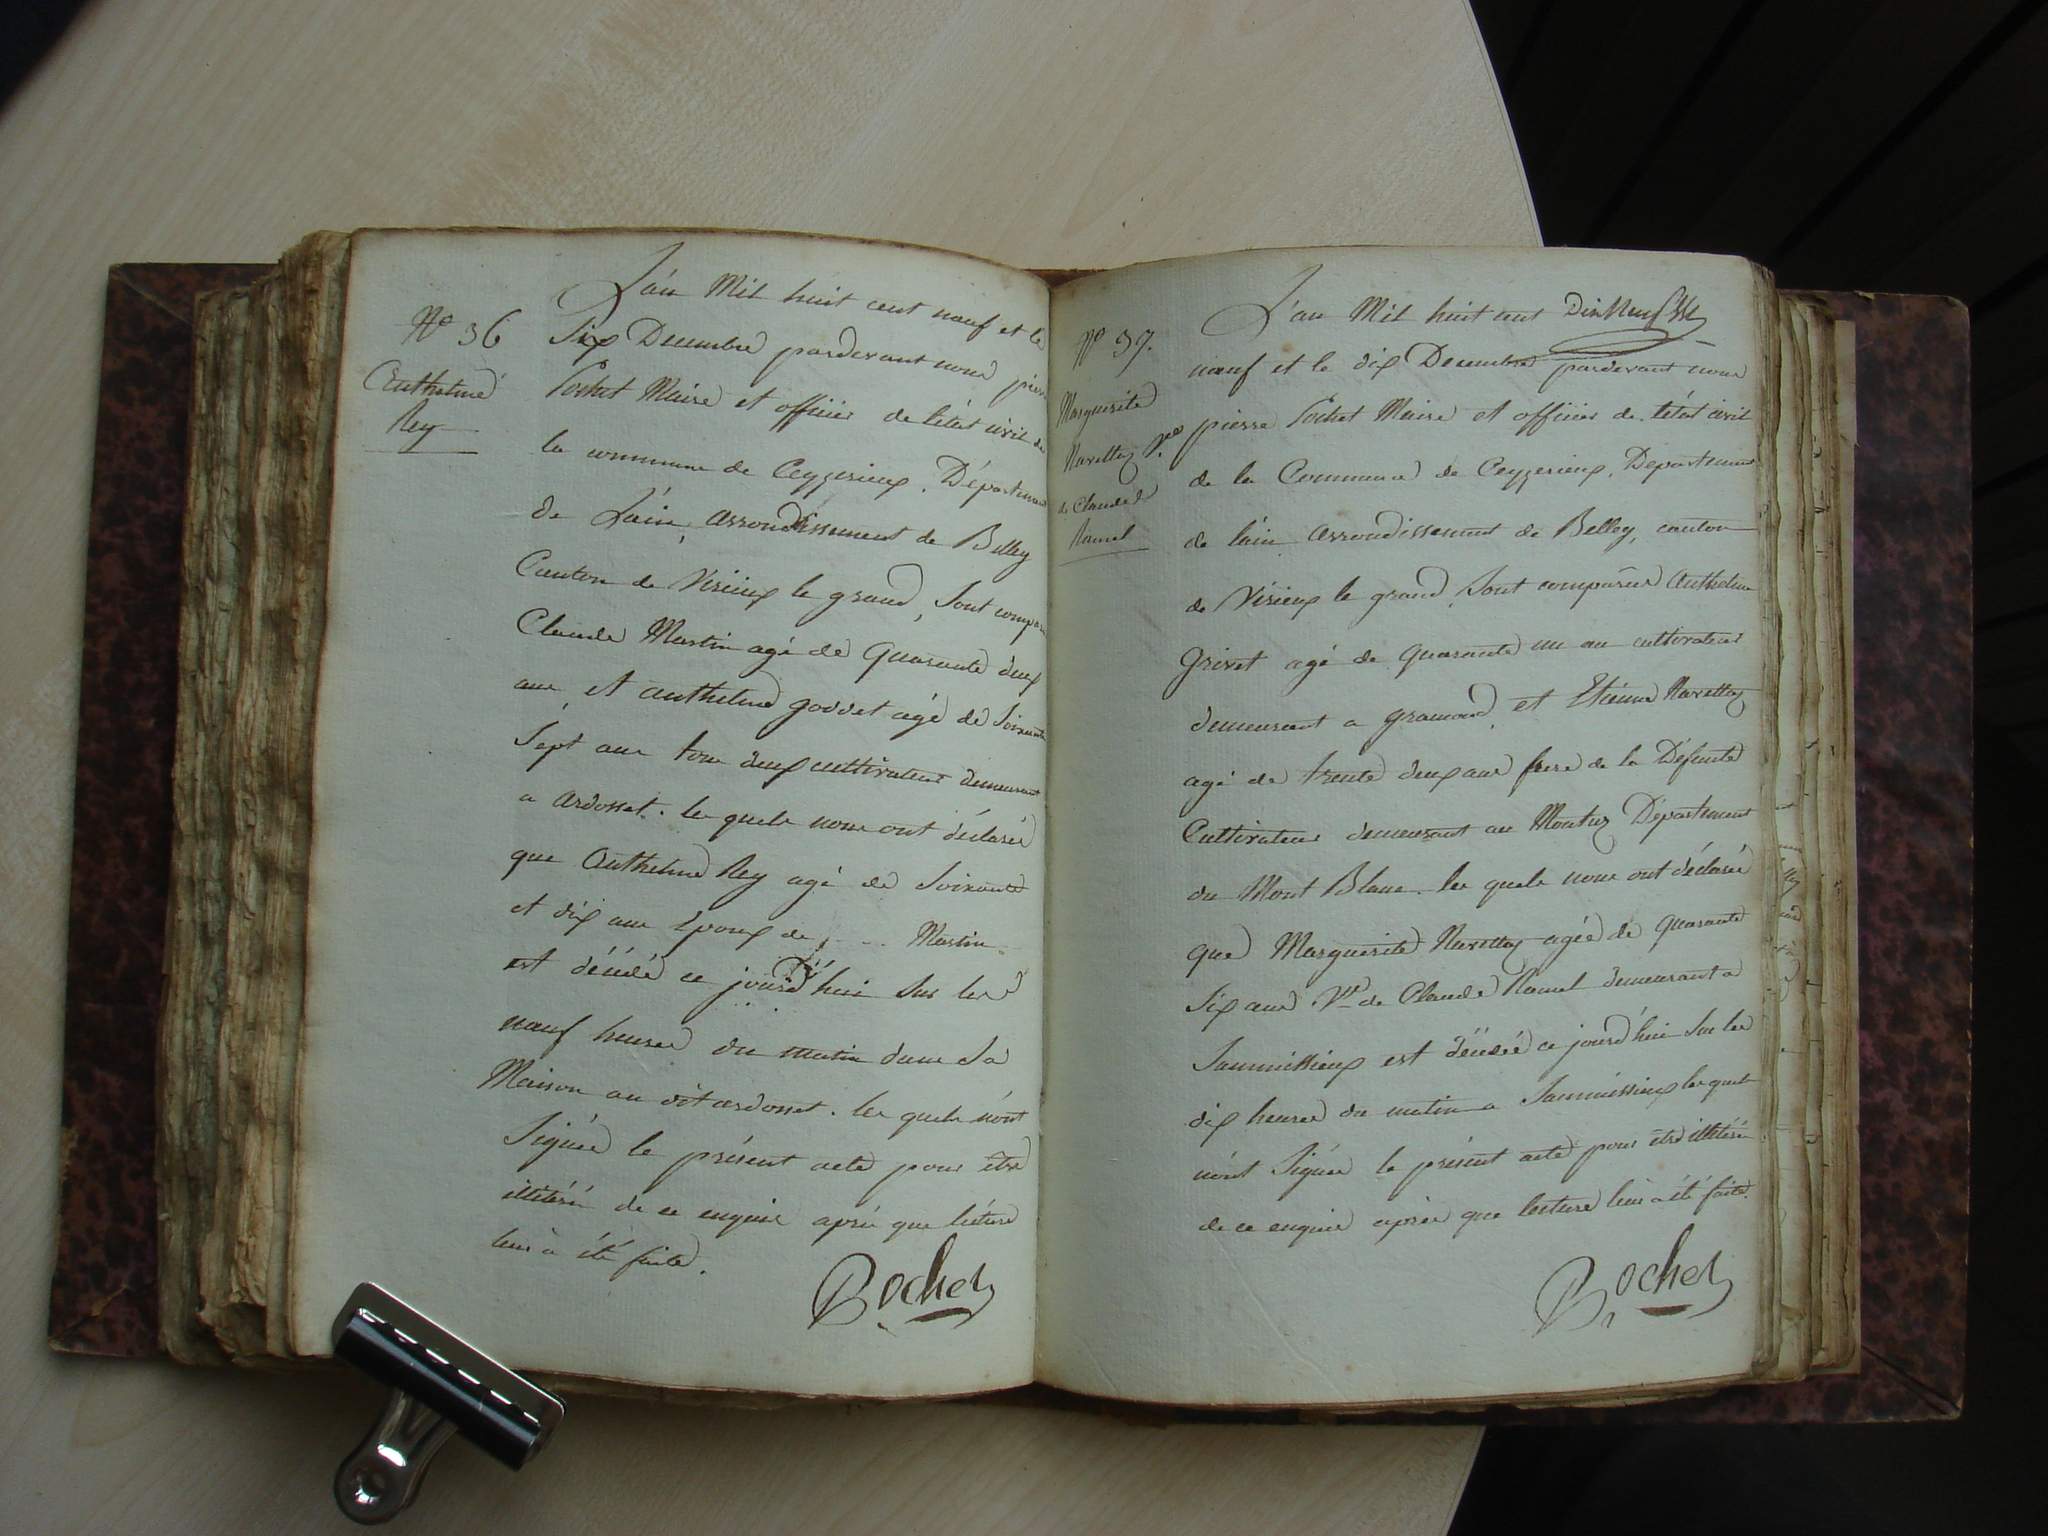 N° 36
Anthelme
Rey
L'an Mil huit cent neuf et le
Six Decembre pardevant nous pierre
Pochet Maire et officier de l'état civil de
la commune de Ceyzerieux, Département
de L'ain, arrondissement de Belley
Canton de Virieux le grand, Sont comparu
Claude Martin agé de Quarante deux
ans, et anthelme goddet agé de Soixante
Sept ans tous deux cultivateurs demeurant
a ardosset. les quels nous ont déclaré
que Anthelme Rey agé de Soixante
et dix ans Epoux de Martin
est décédé ce jourd'hui sur les
neuf heures du matin dans Sa
Maison au dit ardosset. les quels n'ont
Signée le présent acte pour être
illitéré de ce enquis aprés que lécture
leur à été faite.
Pochet
N° 37.
Marguerite
Navettaz Vve
de Claude
Ramel
L'an Mil huit cent
neuf et le dix Decembre pardevant nous
pierre Pochet Maire et officier de l'état civil
de la Commune de Ceyzerieux, Département
de l'ain arrondissement de Belley, canton
de Virieux le grand, Sont comparus Anthelme
Grivet agé de Quarante un an cultivateur
demeurant a gramond, et Etienne Navettaz
agé de trente deux ans frere de la Défunte
Cultivateur demeurant au Département
du Mont Blanc. les quels nous ont déclaré
que Marguerite Navettaz agée de Quarante
Six ans Vve de Claude Ramel demeurant a
est décédée ce jourd'hui sur les
dix heures du matin a les quels
n'ont Signée le présent acte pour être illitéré
de ce enquis aprés que lecture leur a été faite.
Pochet